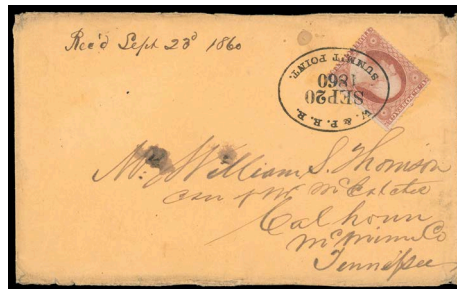 Rec'd Sept 23d 1860
W. & P. R. R.
SEP 20
1860
SUMMIT POINT.
Mr. William S. Thomson
Calhoun
McMinn Co
Tennessee